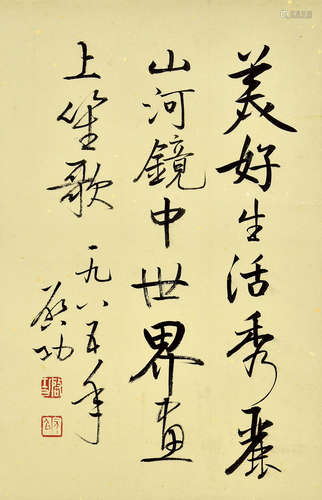 美好生活秀麗
山河鏡中世界畫
上笙歌 一九八五年
啟功